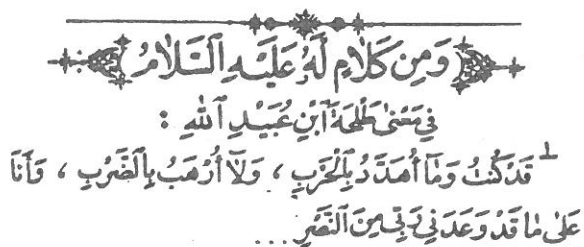 وَمِن كَلَامٍ لَهُ عَلَيْهِ ٱلسَّلَامُ
فِي مَعْنَى طَلْحَةَ ٱبْنِ عُبَيْدِ ٱللهِ :
١ قَدْ كُنْتُ وَمَا أُهَدَّدُ بِالْحَرْبِ ، وَلَا أُرْهَبُ بِالضَّرْبِ ، وَأَنَا
عَلَى مَا قَدْ وَعَدَنِي رَبِّي مِنَ ٱلنَّصْرِ ...